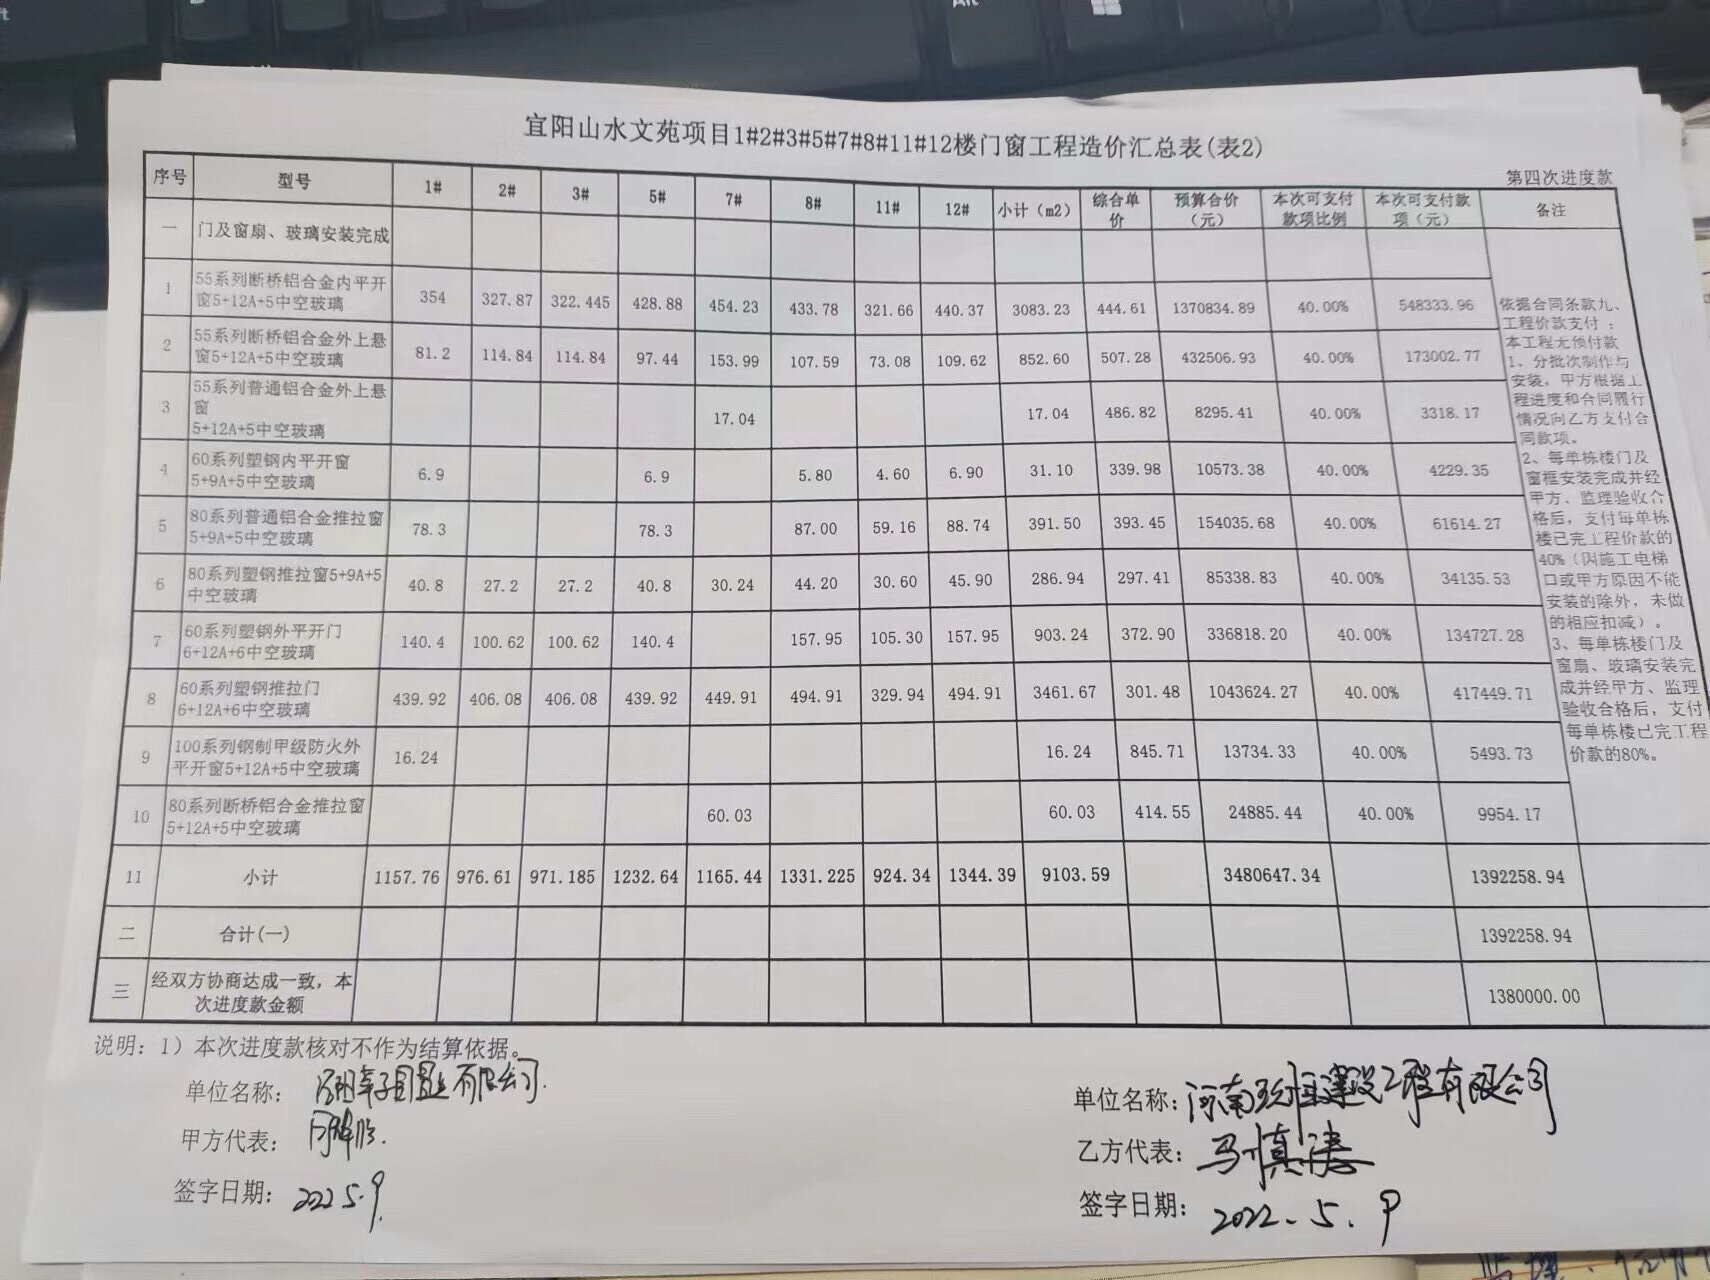 宜阳山水文苑项目1#2#3#5#7#8#11#12楼门窗工程造价汇总表(表2)
第四次进度款
序号 型号 1# 2# 3# 5# 7# 8# 11# 12# 小计（m2） 综合单价 预算合价（元） 本次可支付款项比例 本次可支付款项（元） 备注
一 门及窗扇、玻璃安装完成
1 55系列断桥铝合金内平开窗5+12A+5中空玻璃 354 327.87 322.445 428.88 454.23 433.78 321.66 440.37 3083.23 444.61 1370834.89 40.00% 548333.96
2 55系列断桥铝合金外上悬窗5+12A+5中空玻璃 81.2 114.84 114.84 97.44 153.99 107.59 73.08 109.62 852.60 507.28 432506.93 40.00% 173002.77
3 55系列普通铝合金外上悬窗5+12A+5中空玻璃 17.04 17.04 486.82 8295.41 40.00% 3318.17
4 60系列塑钢内平开窗5+9A+5中空玻璃 6.9 6.9 5.80 4.60 6.90 31.10 339.98 10573.38 40.00% 4229.35
5 80系列普通铝合金推拉窗5+9A+5中空玻璃 78.3 78.3 87.00 59.16 88.74 391.50 393.45 154035.68 40.00% 61614.27
6 80系列塑钢推拉窗5+9A+5中空玻璃 40.8 27.2 27.2 40.8 30.24 44.20 30.60 45.90 286.94 297.41 85338.83 40.00% 34135.53
7 60系列塑钢外平开门6+12A+6中空玻璃 140.4 100.62 100.62 140.4 157.95 105.30 157.95 903.24 372.90 336818.20 40.00% 134727.28
8 60系列塑钢推拉门6+12A+6中空玻璃 439.92 406.08 406.08 439.92 449.91 494.91 329.94 494.91 3461.67 301.48 1043624.27 40.00% 417449.71
9 100系列钢制甲级防火外平开窗5+12A+5中空玻璃 16.24 16.24 845.71 13734.33 40.00% 5493.73
10 80系列断桥铝合金推拉窗5+12A+5中空玻璃 60.03 60.03 414.55 24885.44 40.00% 9954.17
11 小计 1157.76 976.61 971.185 1232.64 1165.44 1331.225 924.34 1344.39 9103.59 3480647.34 1392258.94
二 合计(一) 1392258.94
三 经双方协商达成一致，本次进度款金额 1380000.00
依据合同条款九、
工程价款支付：
本工程无预付款
1、分批次制作与
安装，甲方根据工
程进度和合同履行
情况向乙方支付合
同款项。
2、每单栋楼门及
窗框安装完成并经
甲方、监理验收合
格后，支付每单栋
楼已完工程价款的
40%（因施工电梯
口或甲方原因不能
安装的除外，未做
的相应扣减）。
3、每单栋楼门及
窗扇、玻璃安装完
成并经甲方、监理
验收合格后，支付
每单栋楼已完工程
价款的80%。
说明：1）本次进度款核对不作为结算依据。
单位名称： 置业有限公司
甲方代表：
签字日期： 2022 5.9
单位名称：河南建设工程有限公司
乙方代表：马慎涛
签字日期： 2022.5.9